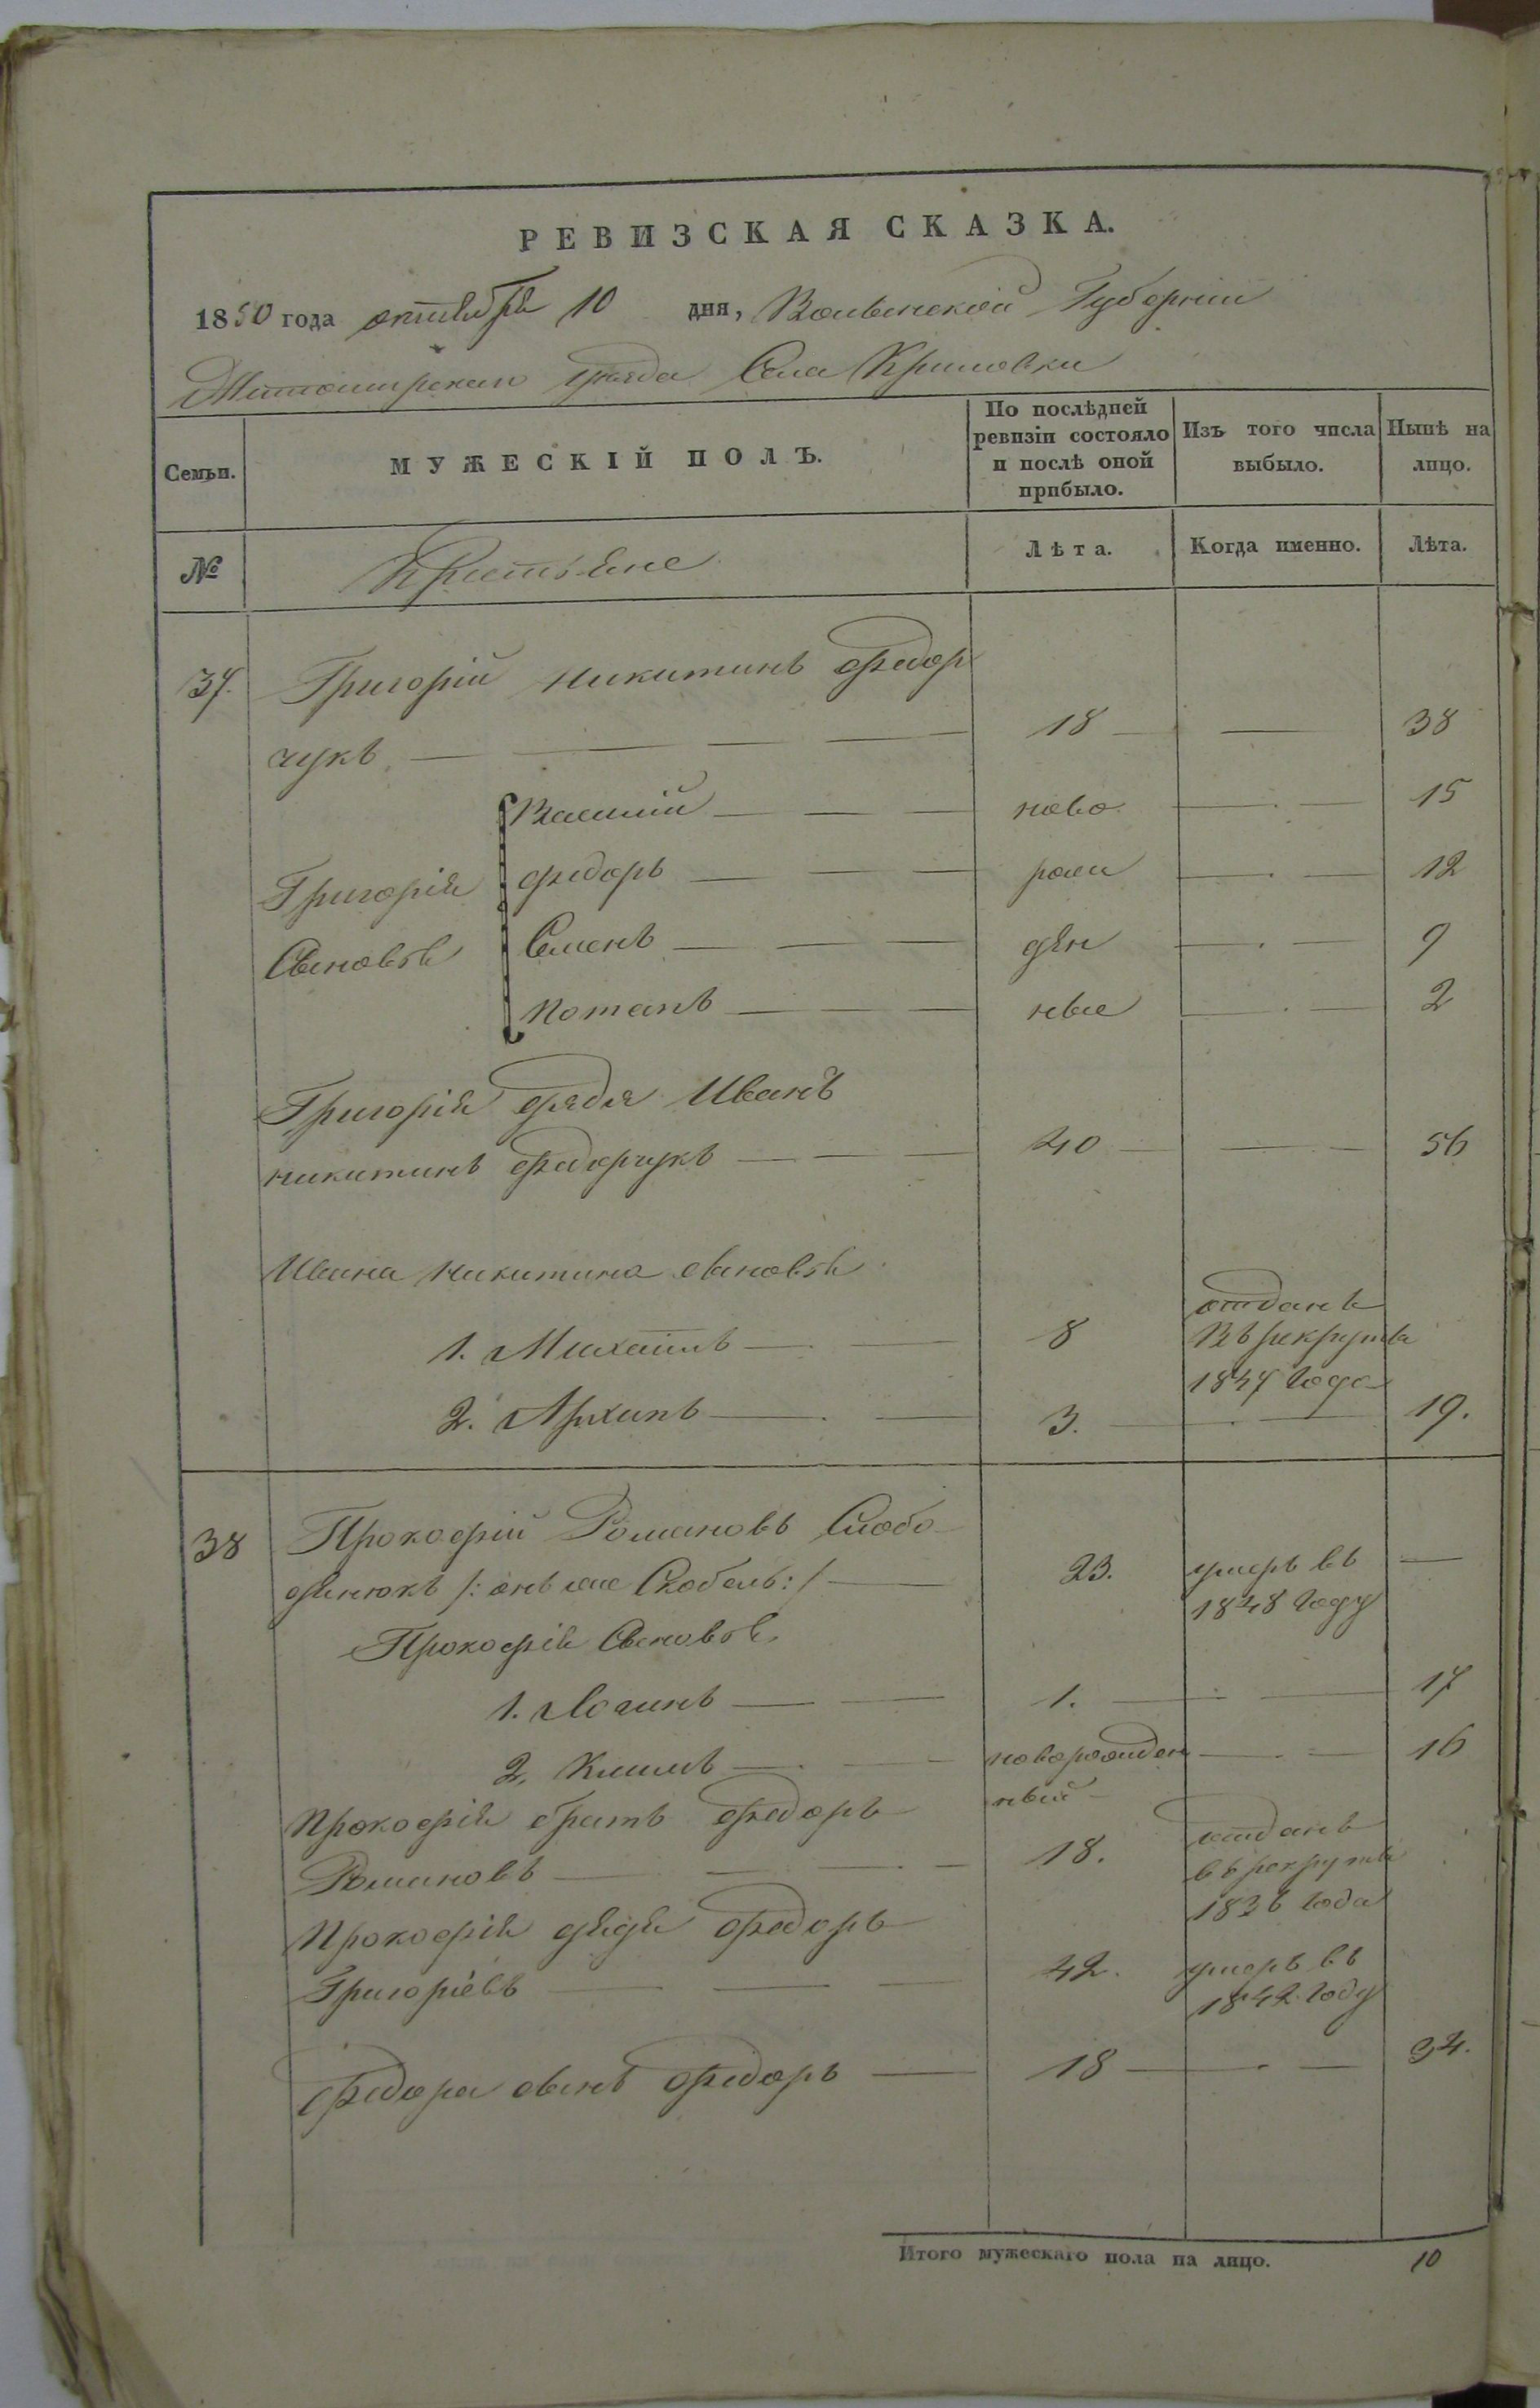 РЕВИЗСКАЯ СКАЗКА.
1850 года октября 10 дня, Волынской Губерніи
Житомирскаго уѣзда Села Крыловки
Семьи.
МУЖЕСКІЙ ПОЛЪ.
По послѣдней ревизіи состояло и послѣ оной прибыло.
Изъ того числа выбыло.
Нынѣ на лицо.
№ Крестьяне Лѣта. Когда именно. Лѣта.
37. Григорій Никитинъ Федор
чукъ — 18 — 38
Василій — ново — 15
Григорія Федоръ — рож — 12
Сыновья Семенъ — ден — 9
Потапъ — ные — 2
Григорія дядя Иванъ
Никитинъ Федорчукъ — 40 — 56
Ивана Никитина сыновья
1. Михаилъ — 8 отданъ въ рекруты 1847 года
2. Архипъ — 3. — 19.
38 Прокофій Романовъ Слобо-
дянюкъ /: онъ же Скобель :/ — 23. умеръ въ 1848 году —
Прокофія Сыновья
1. Логинъ — 1. — 17
2. Климъ — новорожден ный — 16
Прокофія братъ Федоръ
Романовъ — 18. отданъ въ рекруты 1836 года
Прокофія дядя Федоръ
Григорьевъ — 42. умеръ въ 1842 году
Федора сынъ Федоръ — 18 — 34.
Итого мужескаго пола на лицо. 10